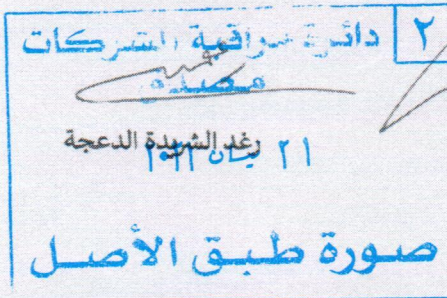 ٢ دائرة مراقبة الشركات
مصدق
رغد الشريدة الدعجة
٢١ نيسان
صورة طبق الأصل